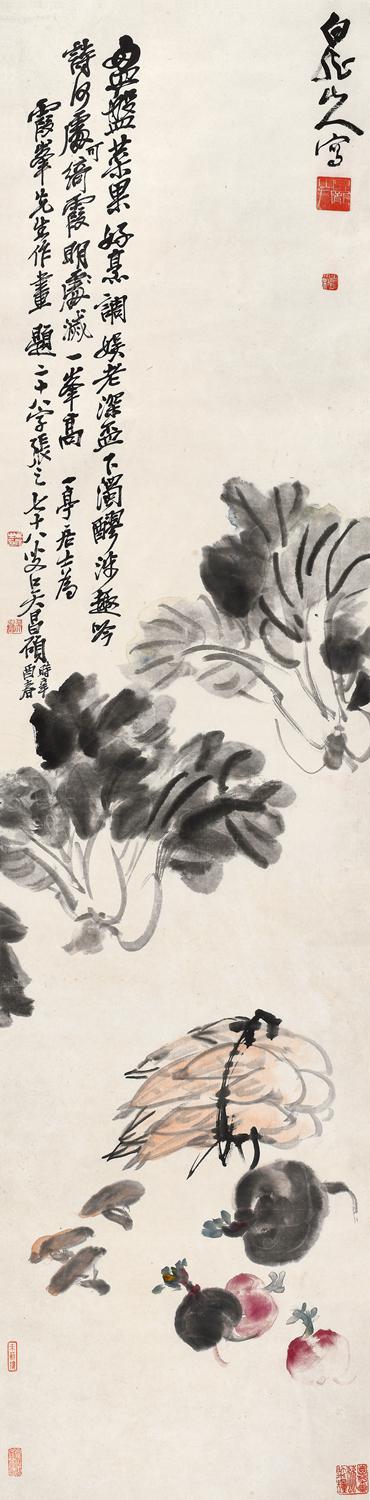 白龍山人寫
盤菜果好烹調娛老深盃下濁醪涉趣吟
詩何處可綺霞明處滅一峯高一亭居士為
霞峯先生作畫題二十八字張之七十八叟吳昌碩
時辛
酉春